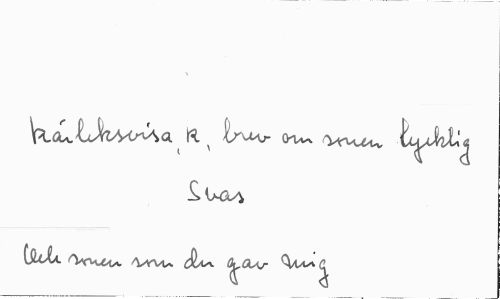 Kärleksvisa, k, brev om sonen lycklig
Svas
Och sonen som du gav mig